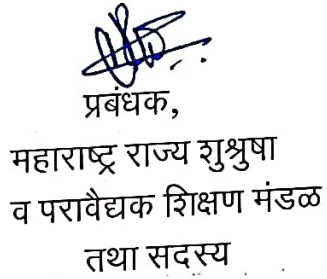 प्रबंधक,
महाराष्ट्र राज्य शुश्रुषा
व परावैद्यक शिक्षण मंडळ
तथा सदस्य